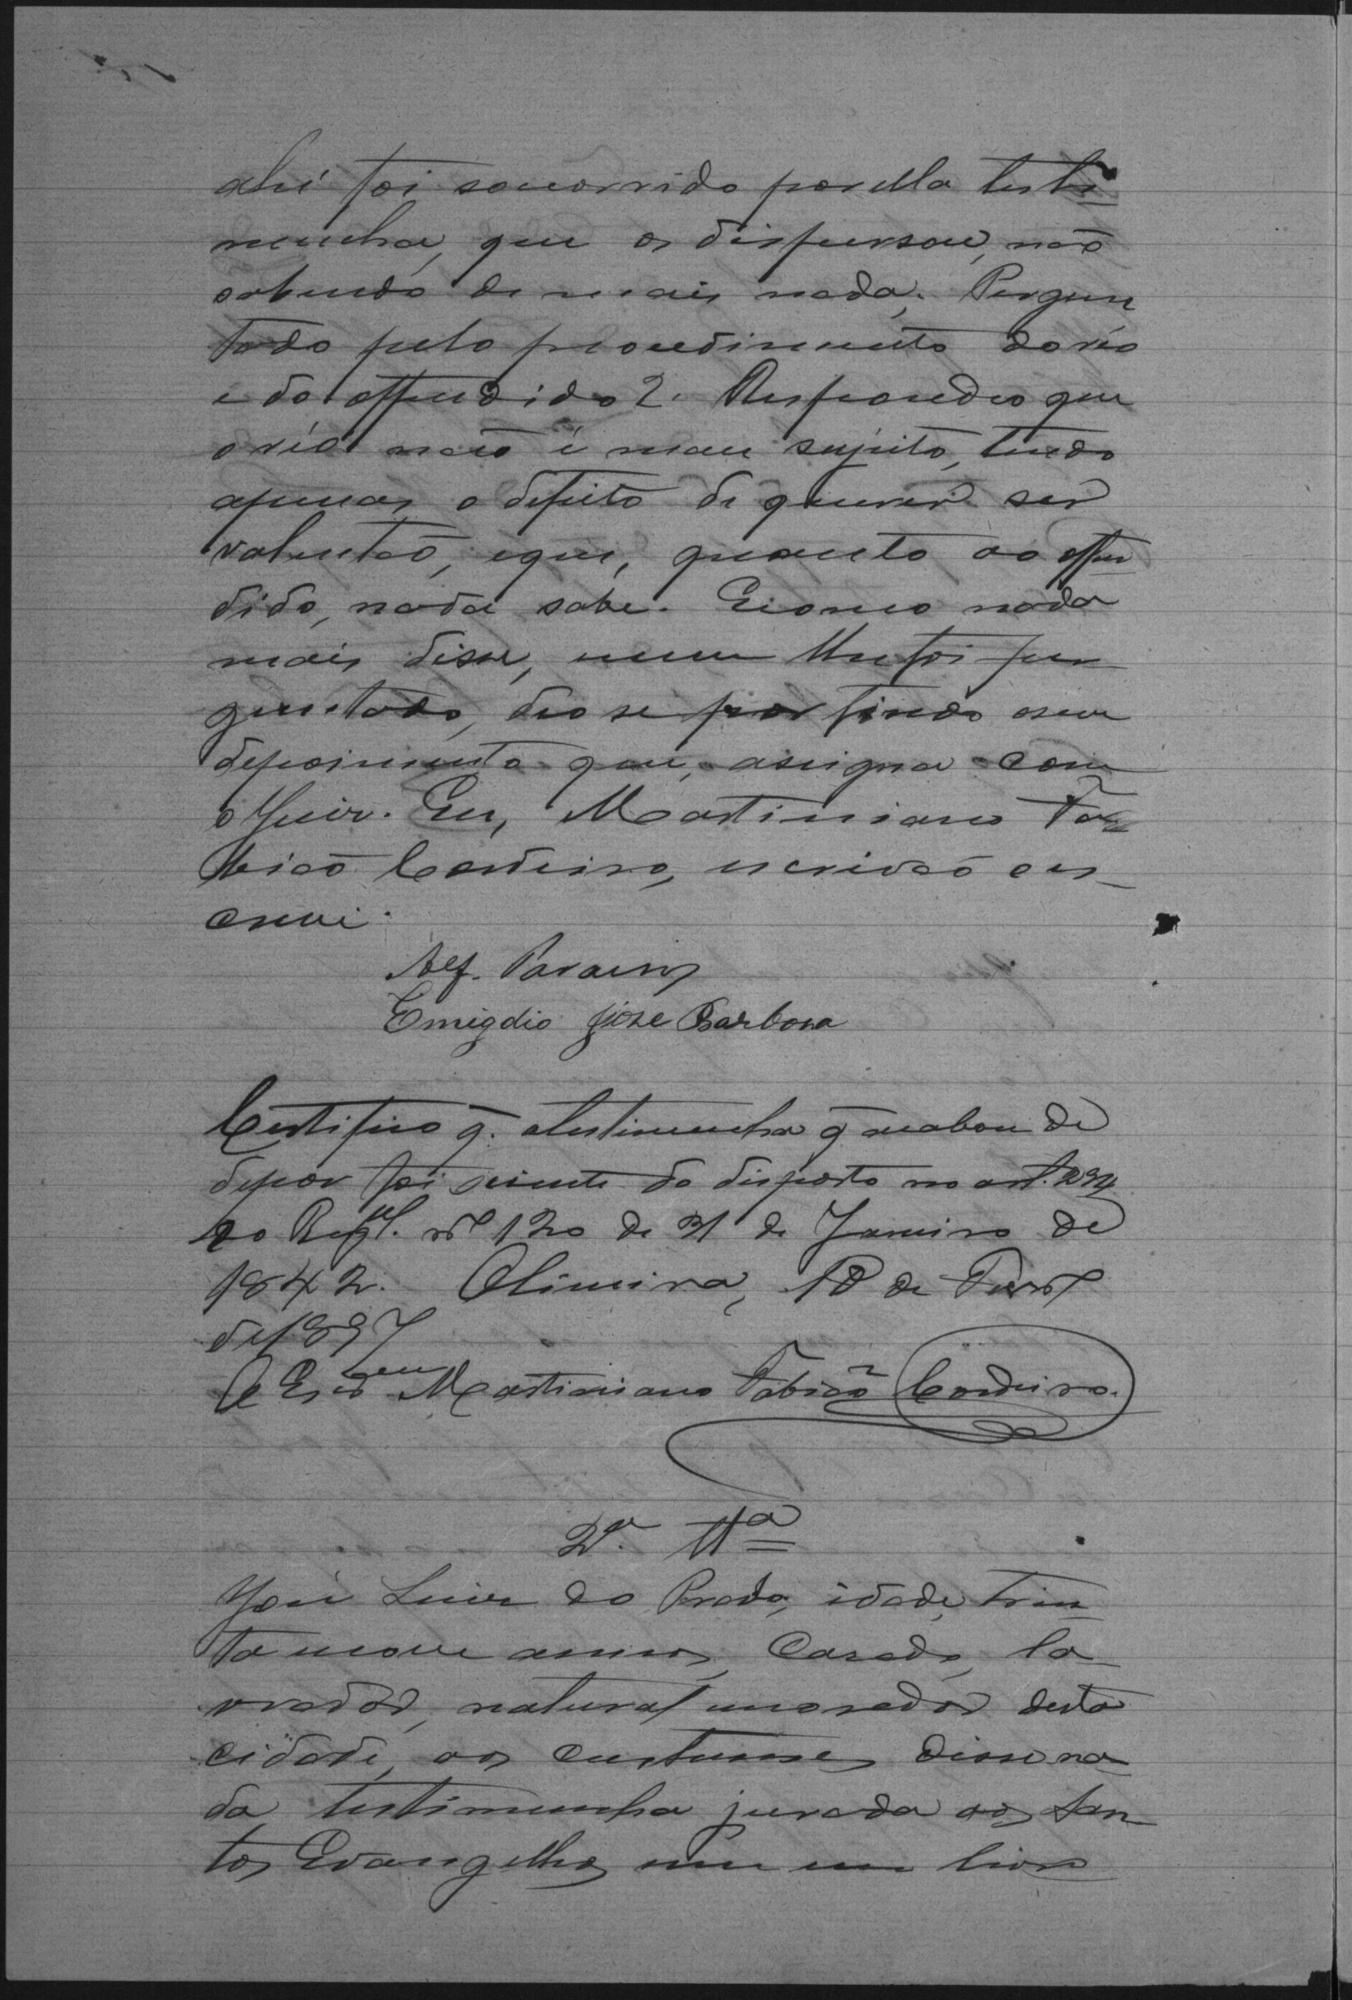 ahi foi socorrido por ella teste
munha, que os dispersou, não
sabendo de mais nada. Pergun
tado pelo procedimento do réo
e do offendido? Respondeo que
o réo não é mau sujeito, tendo
apenas o defeito de querer ser
valentão, e que, quanto ao offen
dido, nada sabe. E como nada
mais disse, nem lhe foi per
guntado, deo se por findo o seu
depoimento que, assigna com
o Juiz. Eu, Martiniano Fa
bião Cordeiro, escrivão o es
crevi.
Alf.
Emigdio José Barbosa
Certifico q. a testimunha q̃ acabou de
depor foi sciente do disposto no art.
do Regl. nº 120 de 31 de Janeiro de
1842. Oliveira, 18 de Fevrº
de 1897
O Escrivam Martiniano Fabião Cordeiro.
2ª. Ttª
José Luiz do Prado, idade, trin
ta nove annos, casado, la
vrador, natural morador desta
cidade, aos custumes disse na
da testimunha jurada aos San
tos Evangelhos em um livro